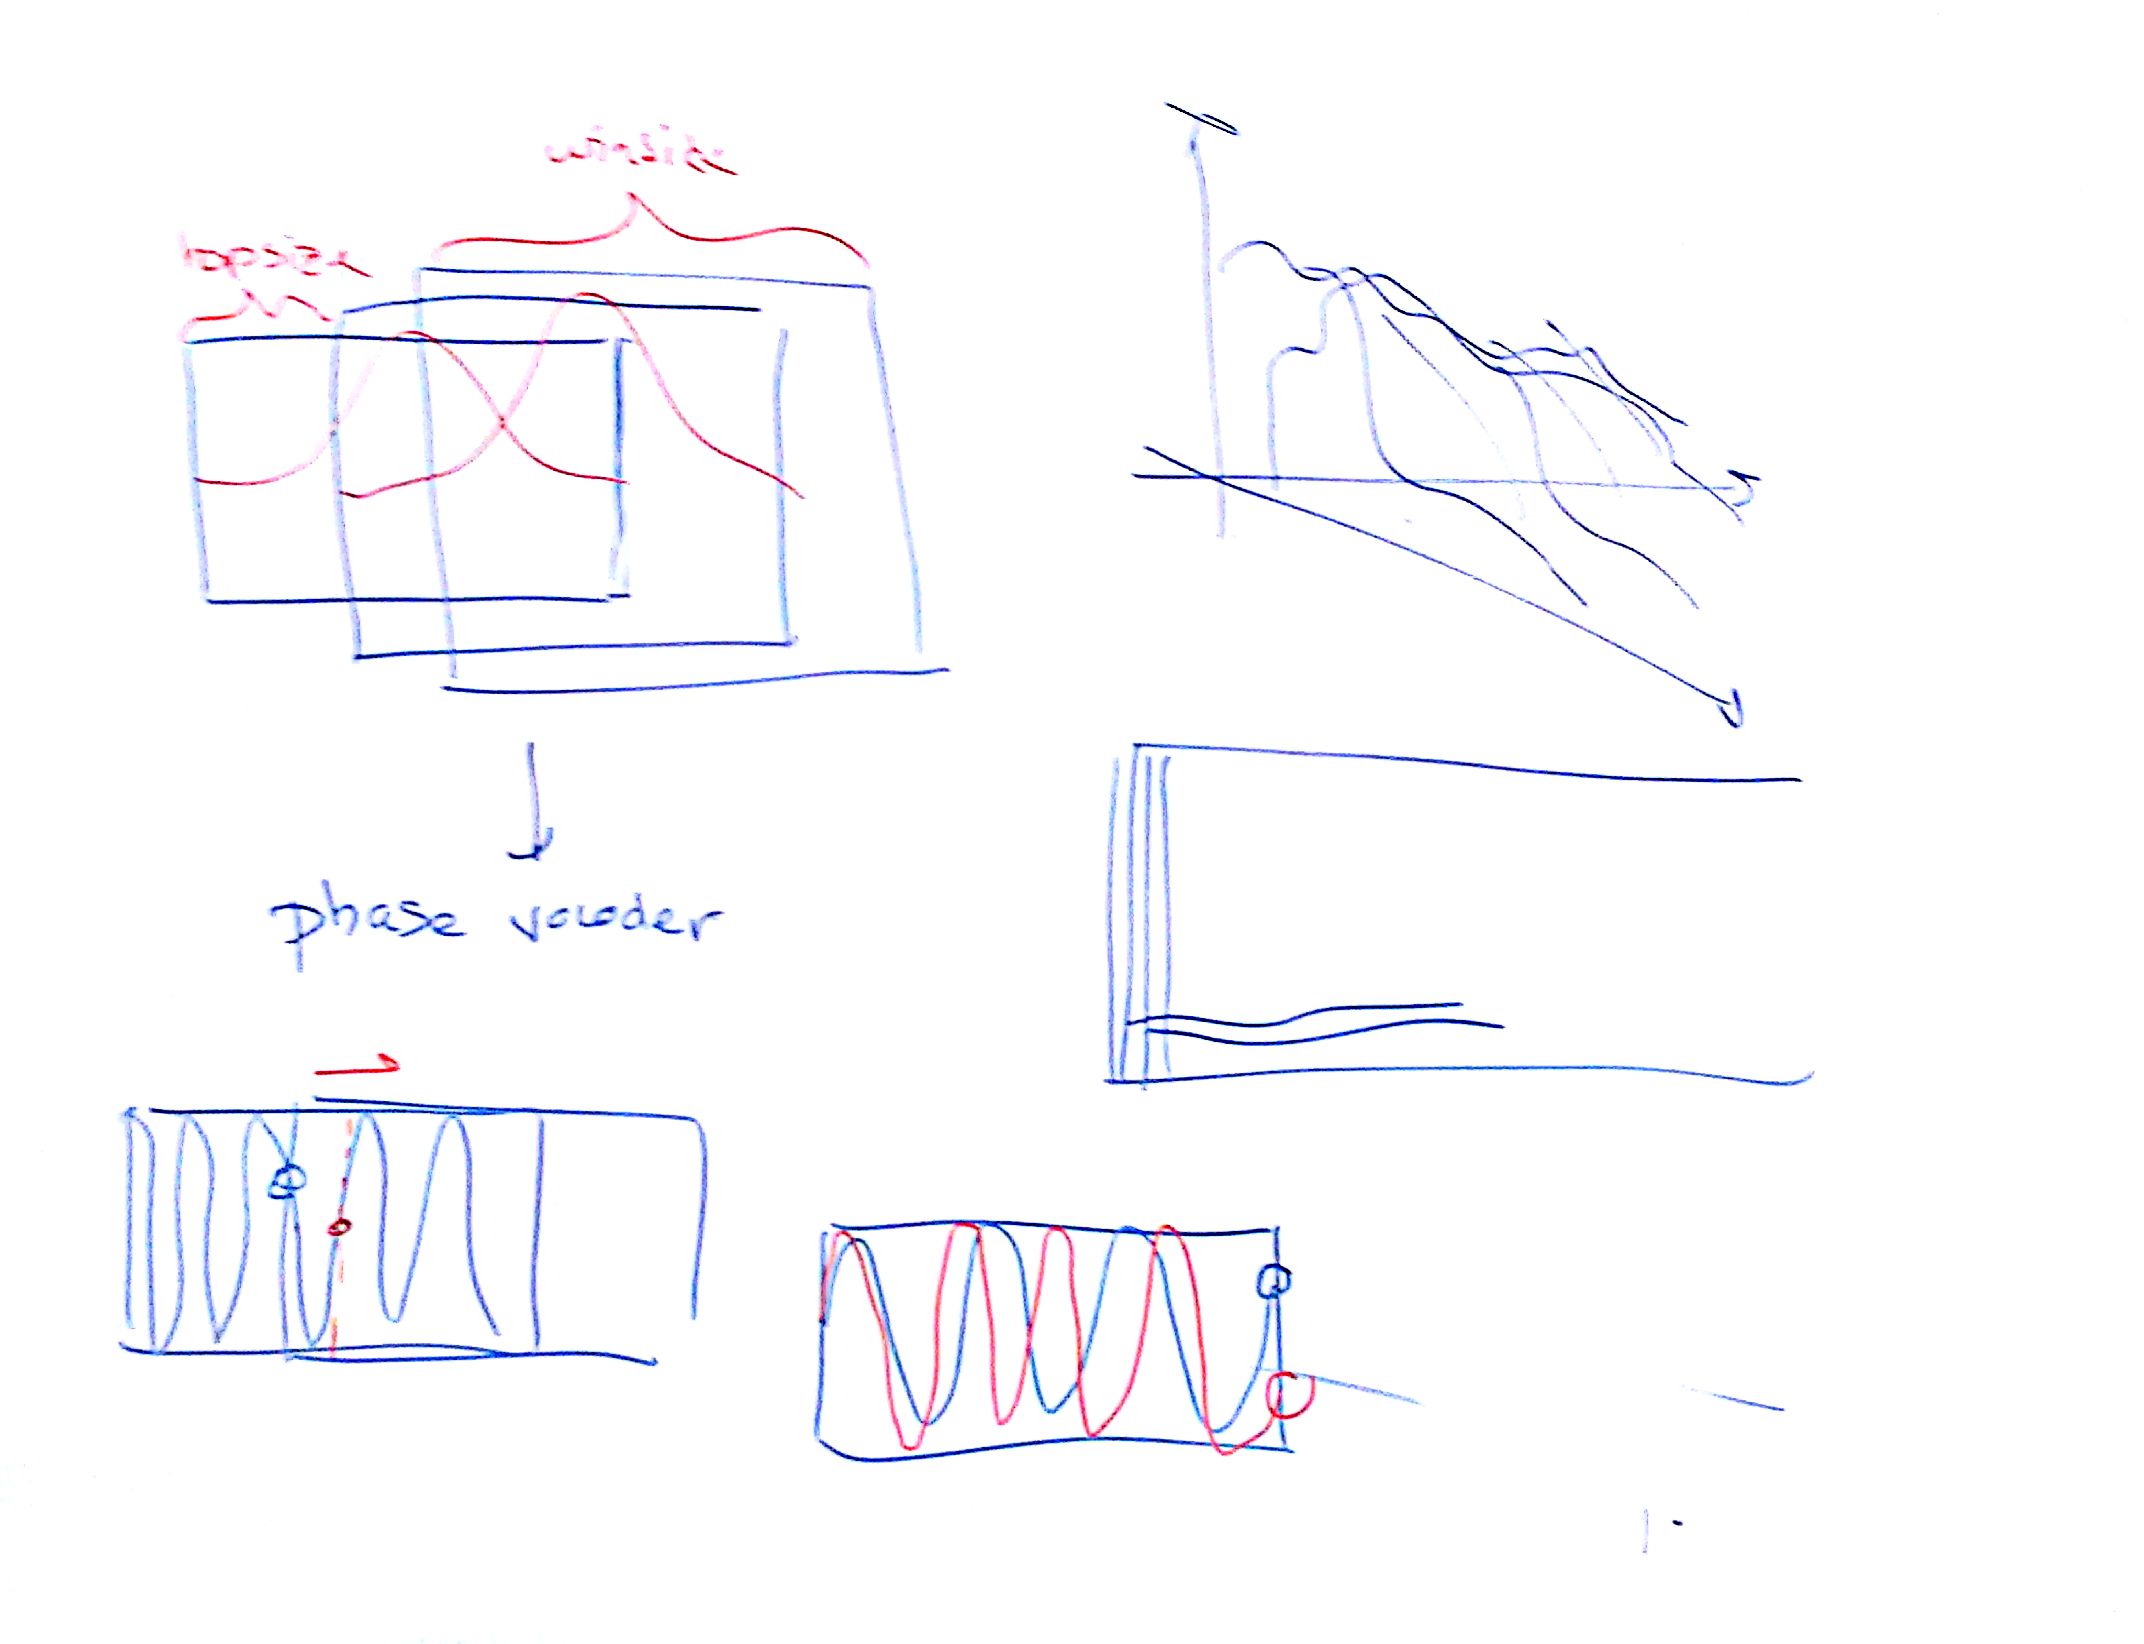 winsize
hopsize
phase vocoder